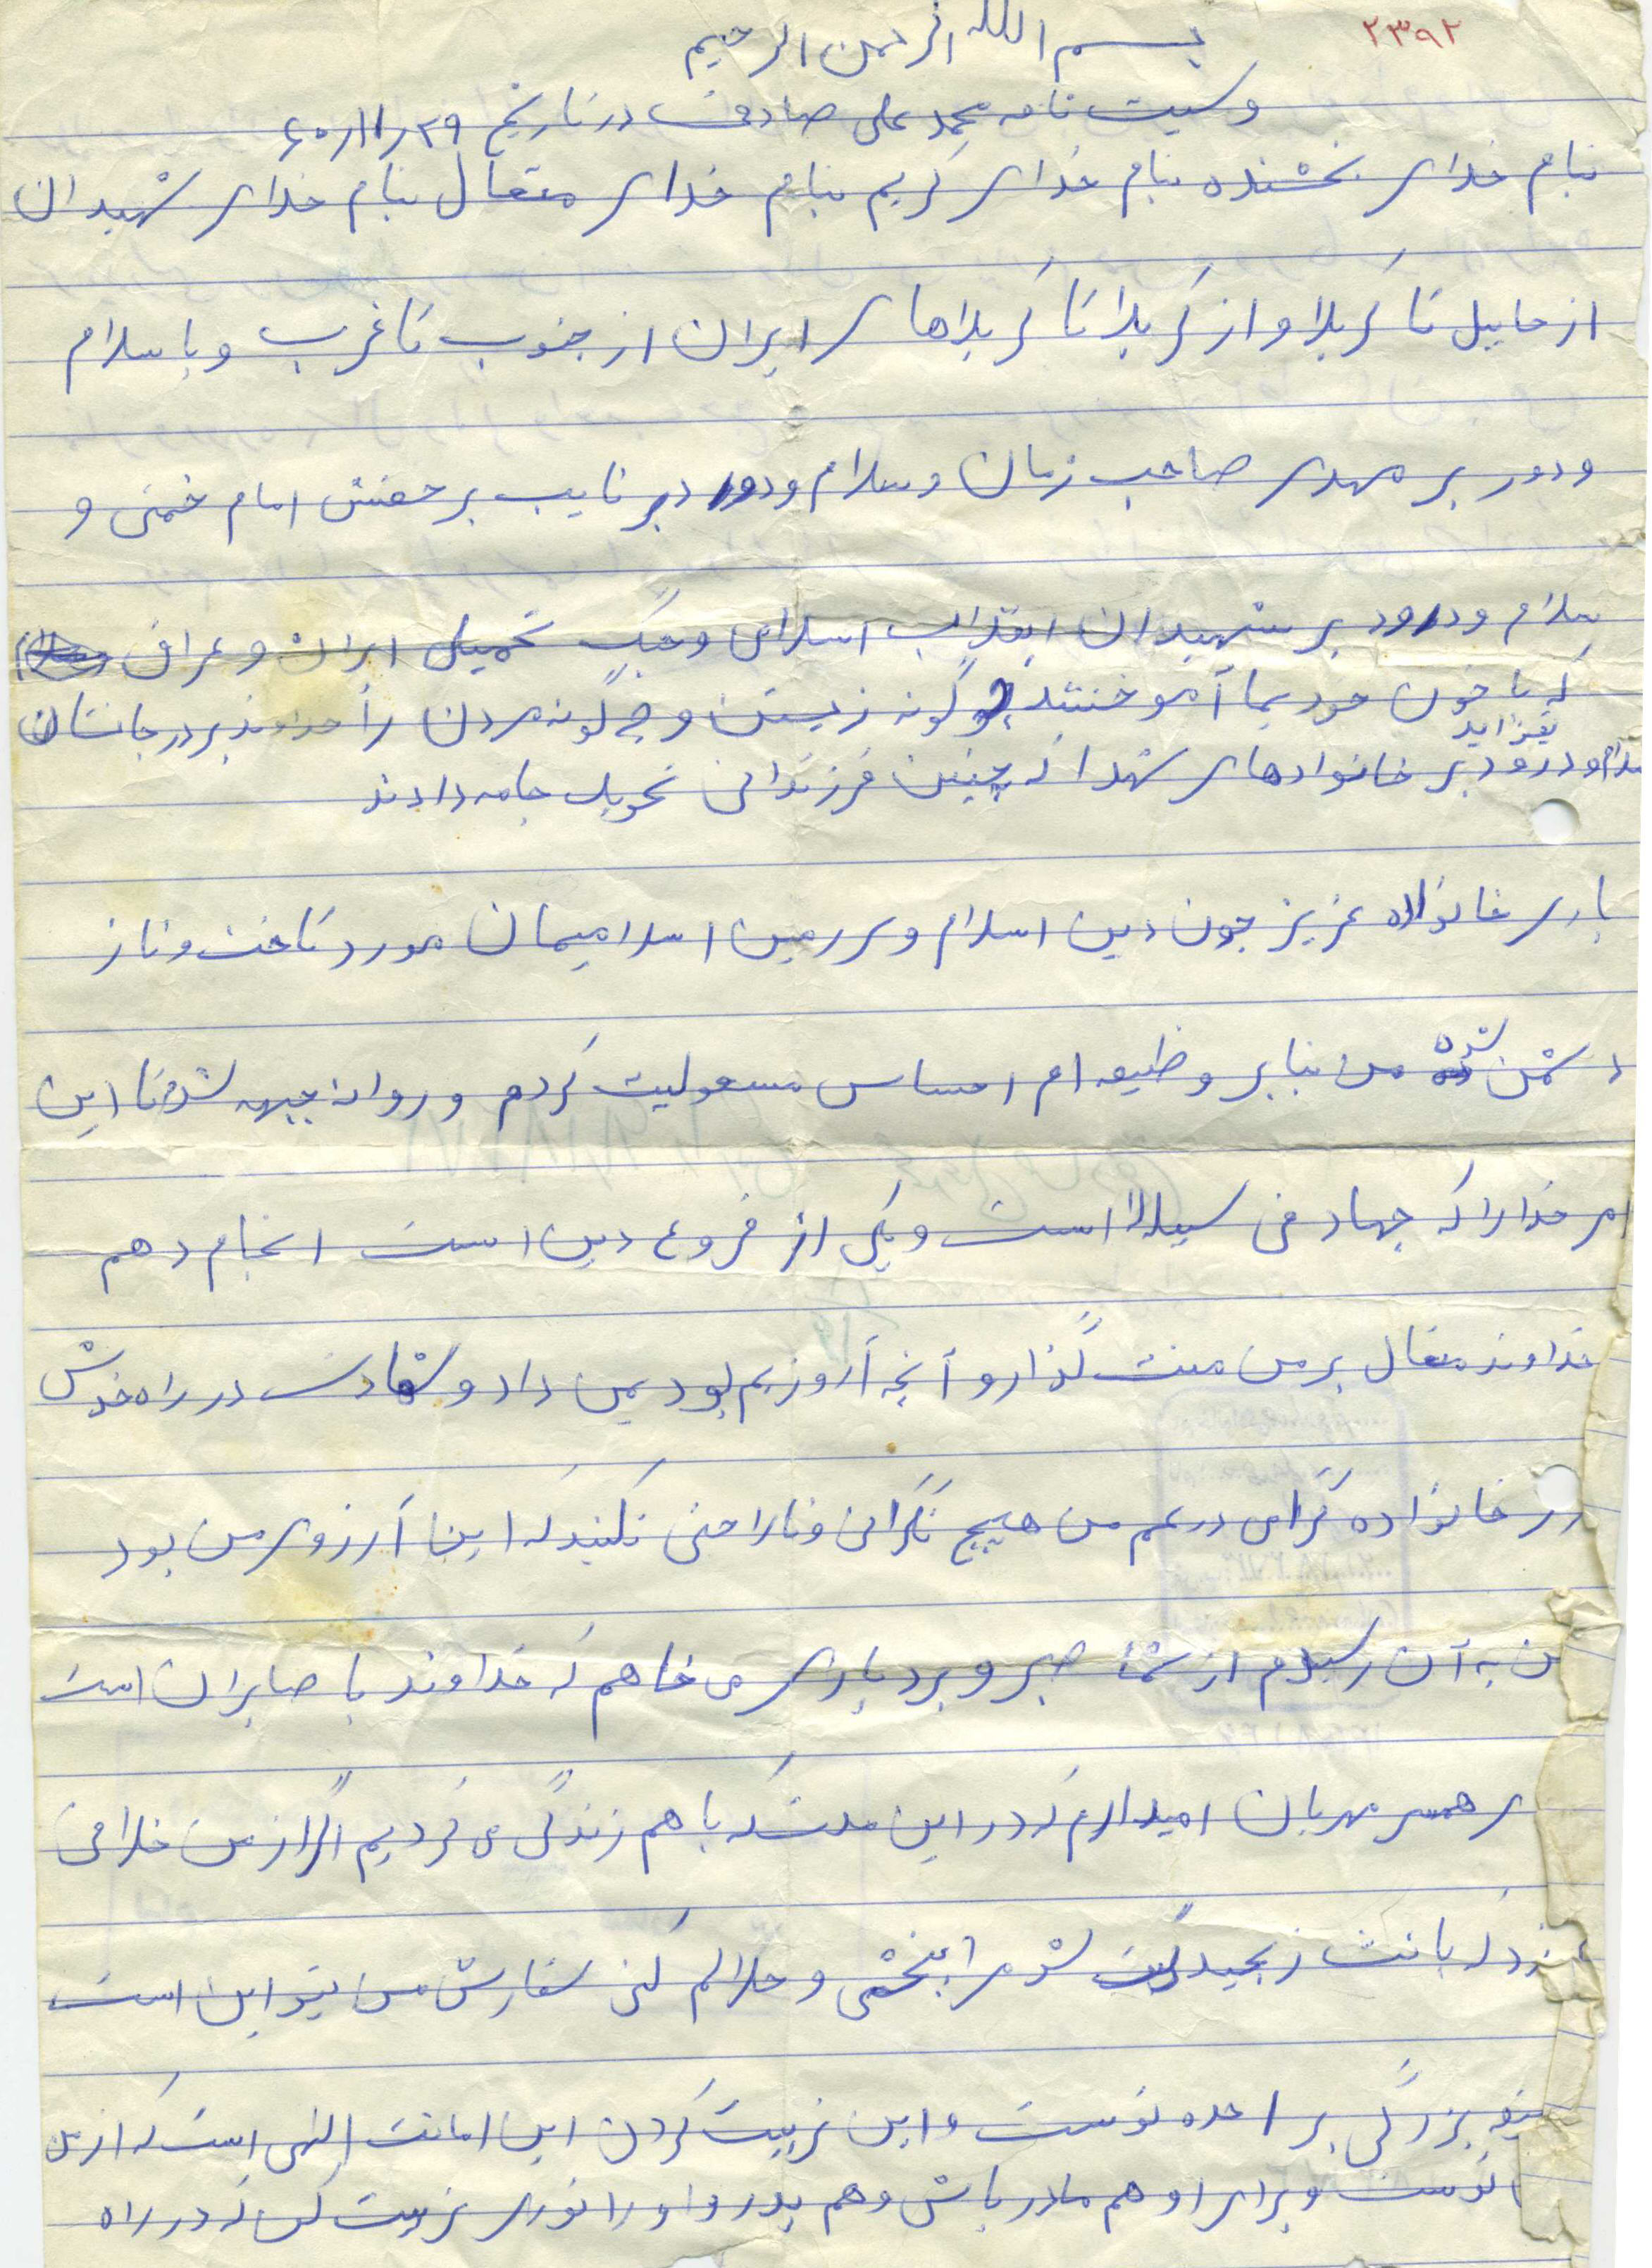 ۲۳۹۲
بسم الله الرحمن الرحیم
وسیت نامه محمد علی صادقی در تاریخ ۲۹ر۱۱ر۶۰
بنام خدای بخشنده بنام خدای کریم بنام خدای متعال بنام خدای شهیدان
از هابیل تا کربلا و از کربلا تا کربلاهای ایران از جنوب تا غرب و با سلام
و درود بر مهدی صاحب زمان و سلام و درود بر نایب بر حقش امام خمنی و
سلام و درود بر شهیدان انقلاب اسلامی و جنگ تحمیلی ایران و عراق
که با خون خود بما آموختند چگونه زیستن و چه گونه مردن را خداوند بر درجاتشان
بفزاید
سلام و درود بر خانوادهای شهدا که چنین فرزندانی تحویل جامه دادند
باری خانواده عزیز چون دین اسلام و سرزمین اسلامیمان مورد تاخت و تاز
دشمن شده من بنابر وظیعه ام احساس مسعولیت کردم و روانه جبهه شدم تا این
امر خدا را که جهاد فی سبیلالا است و یکی از فروع دین است انجام دهم
خداوند متعال بر من منت گذارو آنچه آروزیم بود بمن داد و شهادت در راه خودش
خانواده گرامی در غم من هیچ نگرانی و ناراحتی نکنید که این آرزوی من بود
من به آن رسیدم از شما صبر و بردباری می خاهم که خداوند با صابران است
همسر مهربان امیدارم که در این مدت که با هم زندگی می کردیم اگر از من خلافی
که باعث رنجیدگیت شد مرا ببخشی و حلالم کنی سفارش من بتو این است
بزرگی بر احده توست و این تربیت کردن این امانت الهی است که از من
توست و برای او هم مادر باش و هم پدر و او را توری تربیت کن که در راه